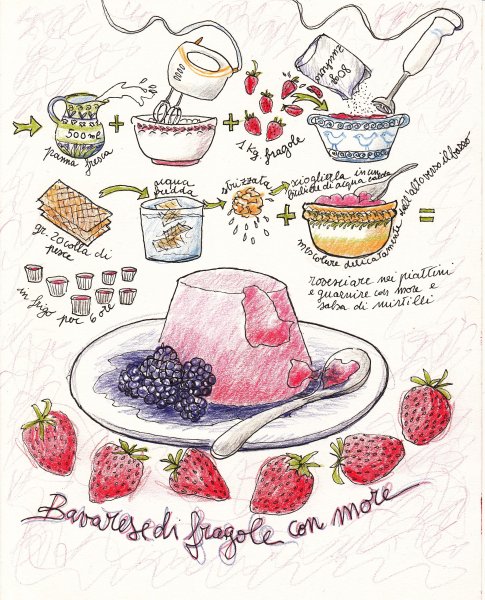 500 ml
panna fresca
1 Kg. fragole
80g
zucchero
gr. 20 colla di
pesce
acqua
fredda
strizzata
scioglierla in un
bicchiere di acqua calda
mescolare delicatamente dall'alto verso il basso
in frigo per 6 ore
rovesciare nei piattini
e guarnire con more e
salsa di mirtilli
Bavarese di fragole con more